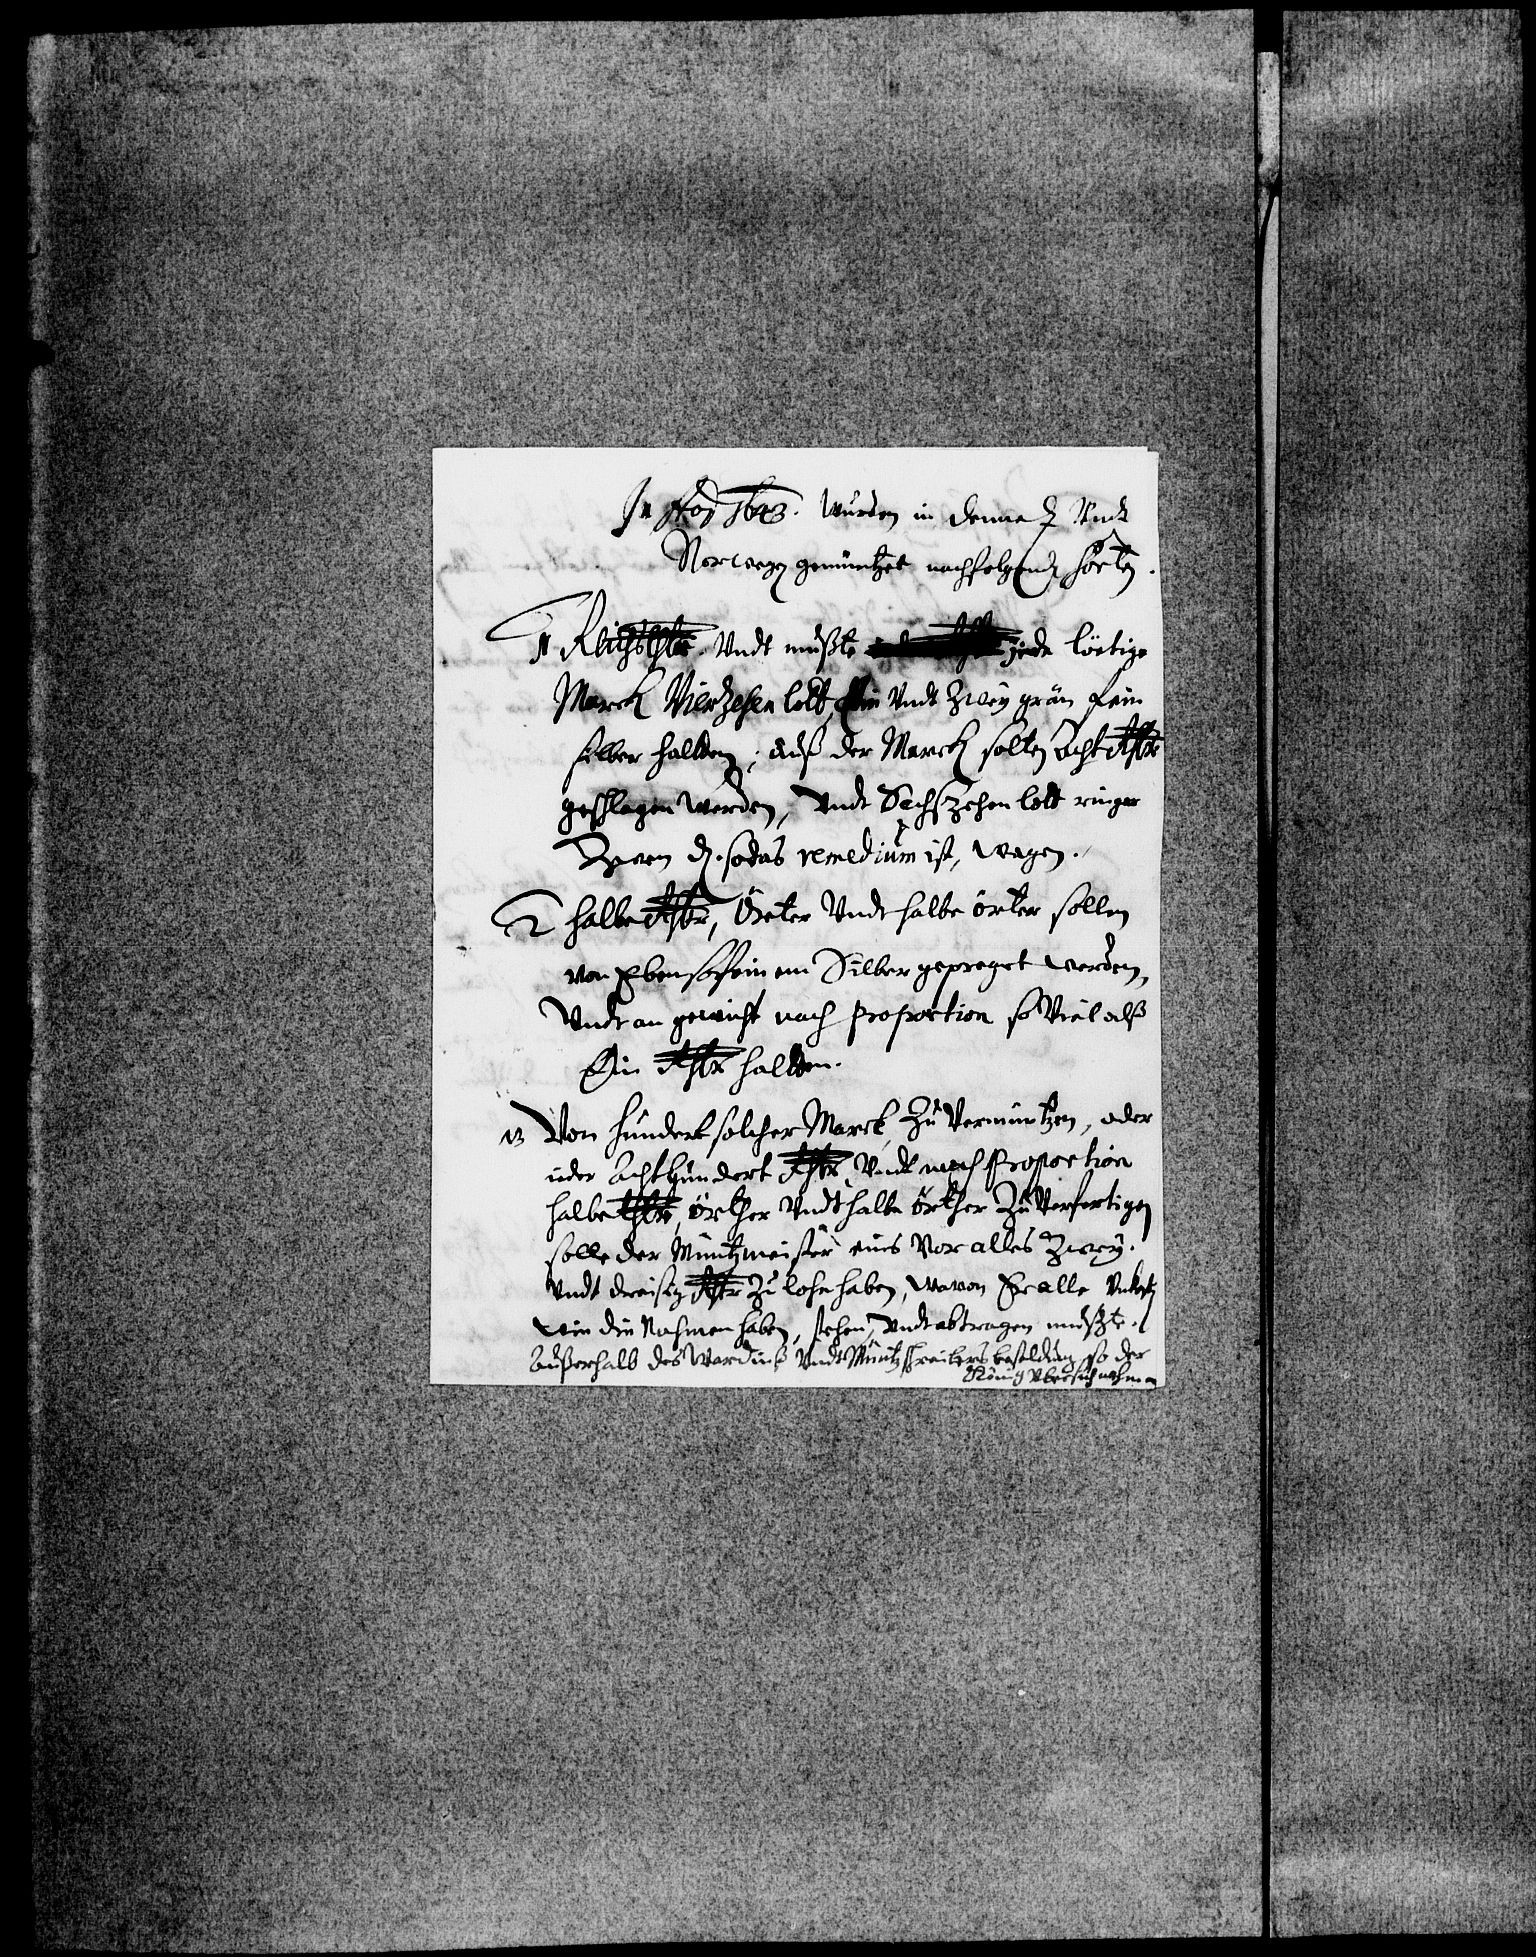 In Ao 1643. wurden in Dennem. Undt
Norwegen gemüntzet nachfolgende Sorten.
1 Reichsthlr. Undt mußte jede lödtige
Marck Vierzehen lott, Undt Zwey grän fein
silber halten, auß der Marck solten acht Rthlr
geschlagen werden, Undt Sechszehen lott ringer
d. so das remedium ist, wagen.
2 halbe Rthlr, Örter Undt halbe örter sollen
von Eben so feinem Silber gepreget werden,
Undt an gewicht nach proportion so Viel alß
Ein Rthlr halten.
3 Von hundert solcher Marck Zu Vermüntzen, oder
ieder Achthundert Rthlr Undt nach Proportion
halbe thlr, örther Undt halbe örther Zu Verfertigen
solle der Müntzmeister eins Vor alles Zwey
Undt dreisig Rthlr Zu lohn haben, wavon Er alle Unkosten
wie die Nahmen haben, stehen, Undt abtragen mußte.
Außerhalb des Wardins Undt Müntzschreibers besoldung, so der
König Uber sich nahm